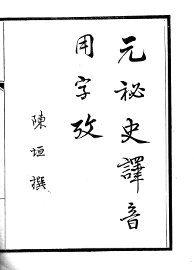 元祕史譯音
用字攷
陳垣撰